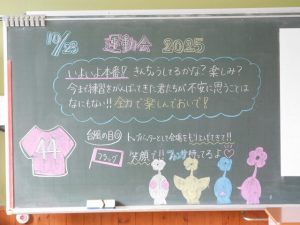 10/25 運動会 2025
いよいよ本番!! きんちょうしてるかな? 楽しみ?
今まで練習をがんばってきた君たちが不安に思うことは
なにもない!! 全力で楽しんでおいで!
台風の目 トップバッターとして会場をもり上げてきて!!
フラッグ 笑顔で!! 待ってるよ
44